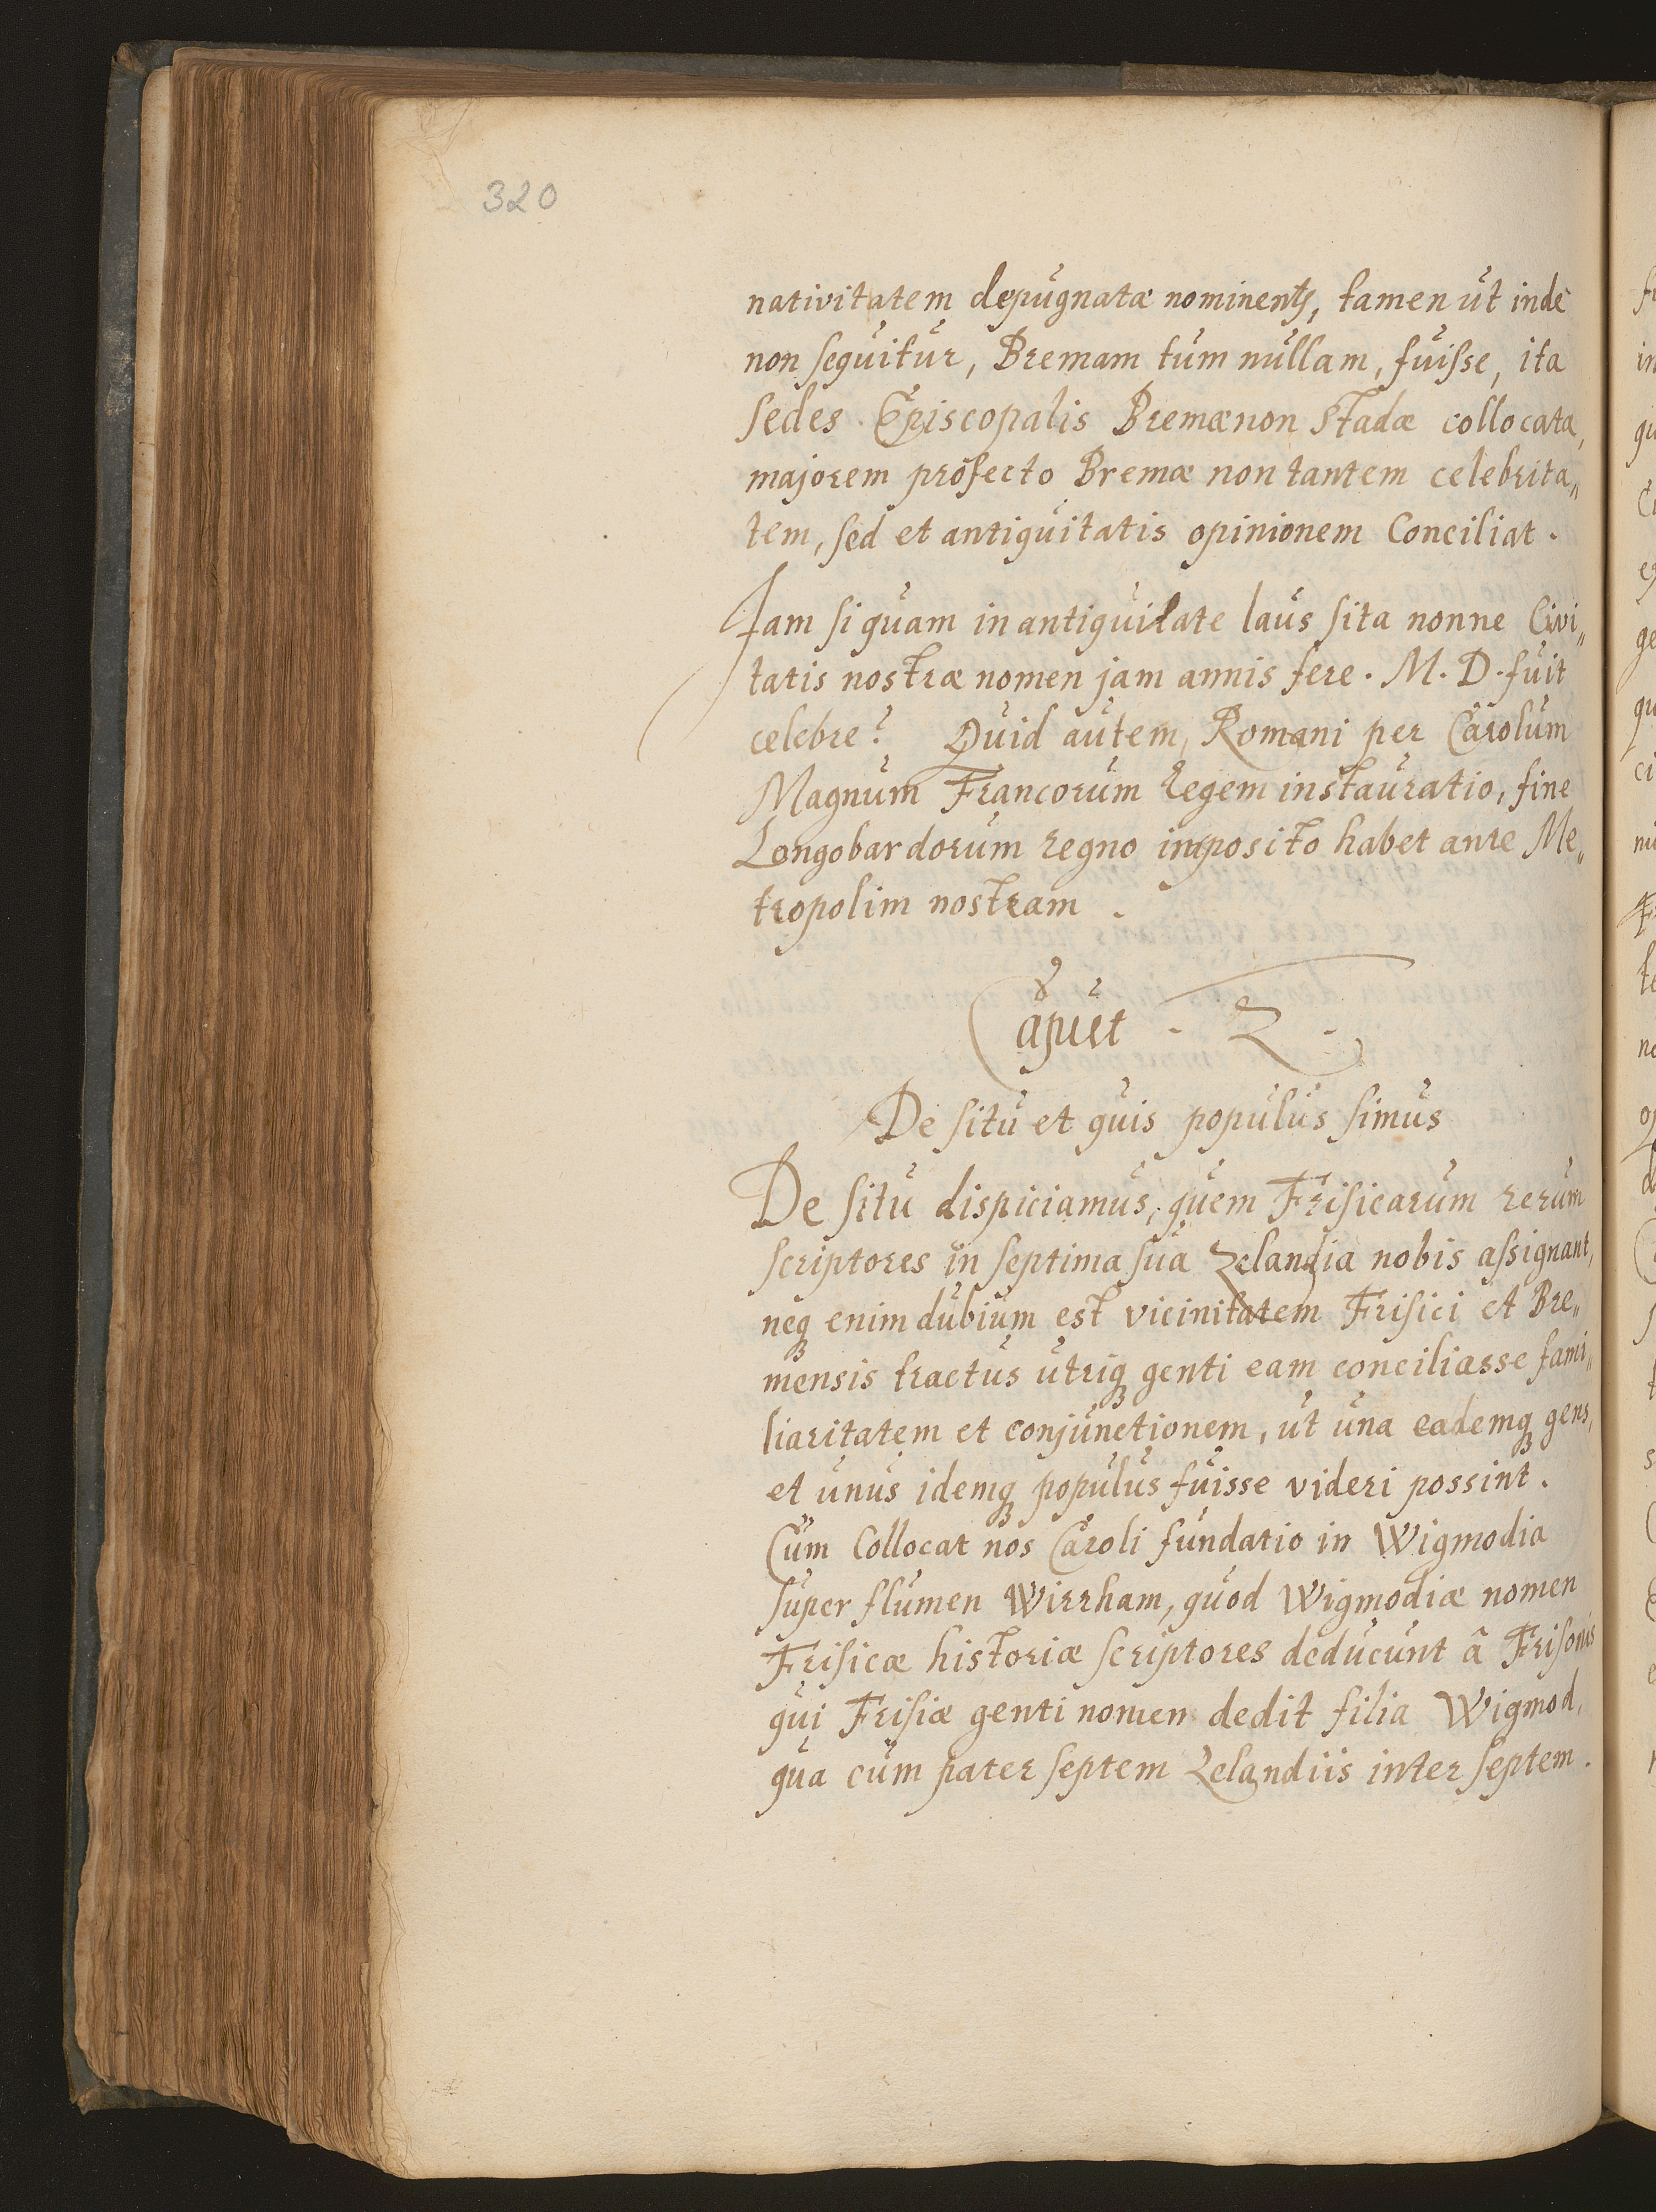 320
nativitatem depugnatæ nominentꝭ, tamen ut indè
non sequitur, Bremam tum nullam, fuisse, ita
sedes Episcopalis Bremæ non Stadæ collocata,
majorem profecto Bremæ non tantem celebrita„
tem, sed et antiquitatis opinionem Conciliat.
Jam si quam in antiquitate laus sita nonne Civi„
tatis nostræ nomen jam annis fere. M. D. fuit
celebre? Quid autem, Romani per Carolum
Magnum Francorum Regem instauratio, fine
Longobardorum regno imposito habet ante Me„
tropolim nostram.
Caput. 2.
De situ et quis populus simus
De situ dispiciamus, quem Frisicarum rerum
scriptores in septima sua Zelandia nobis assignant,
neqꝫ enim dubium est vicinitatem Frisici et Bre„
mensis tractus utriqꝫ genti eam conciliasse fami„
liaritatem et conjunctionem, ut una eademqꝫ gens,
et unus idemqꝫ populus fuisse videri possint.
Cum Collocat nos Caroli fundatio in Wigmodia
super flumen Wirrham, quod Wigmodiæ nomen
Frisicæ historiæ scriptores deducunt â Frisonis
qui Frisiæ genti nomen dedit filia Wigmod,
qua cum pater septem Zelandiis inter septem.